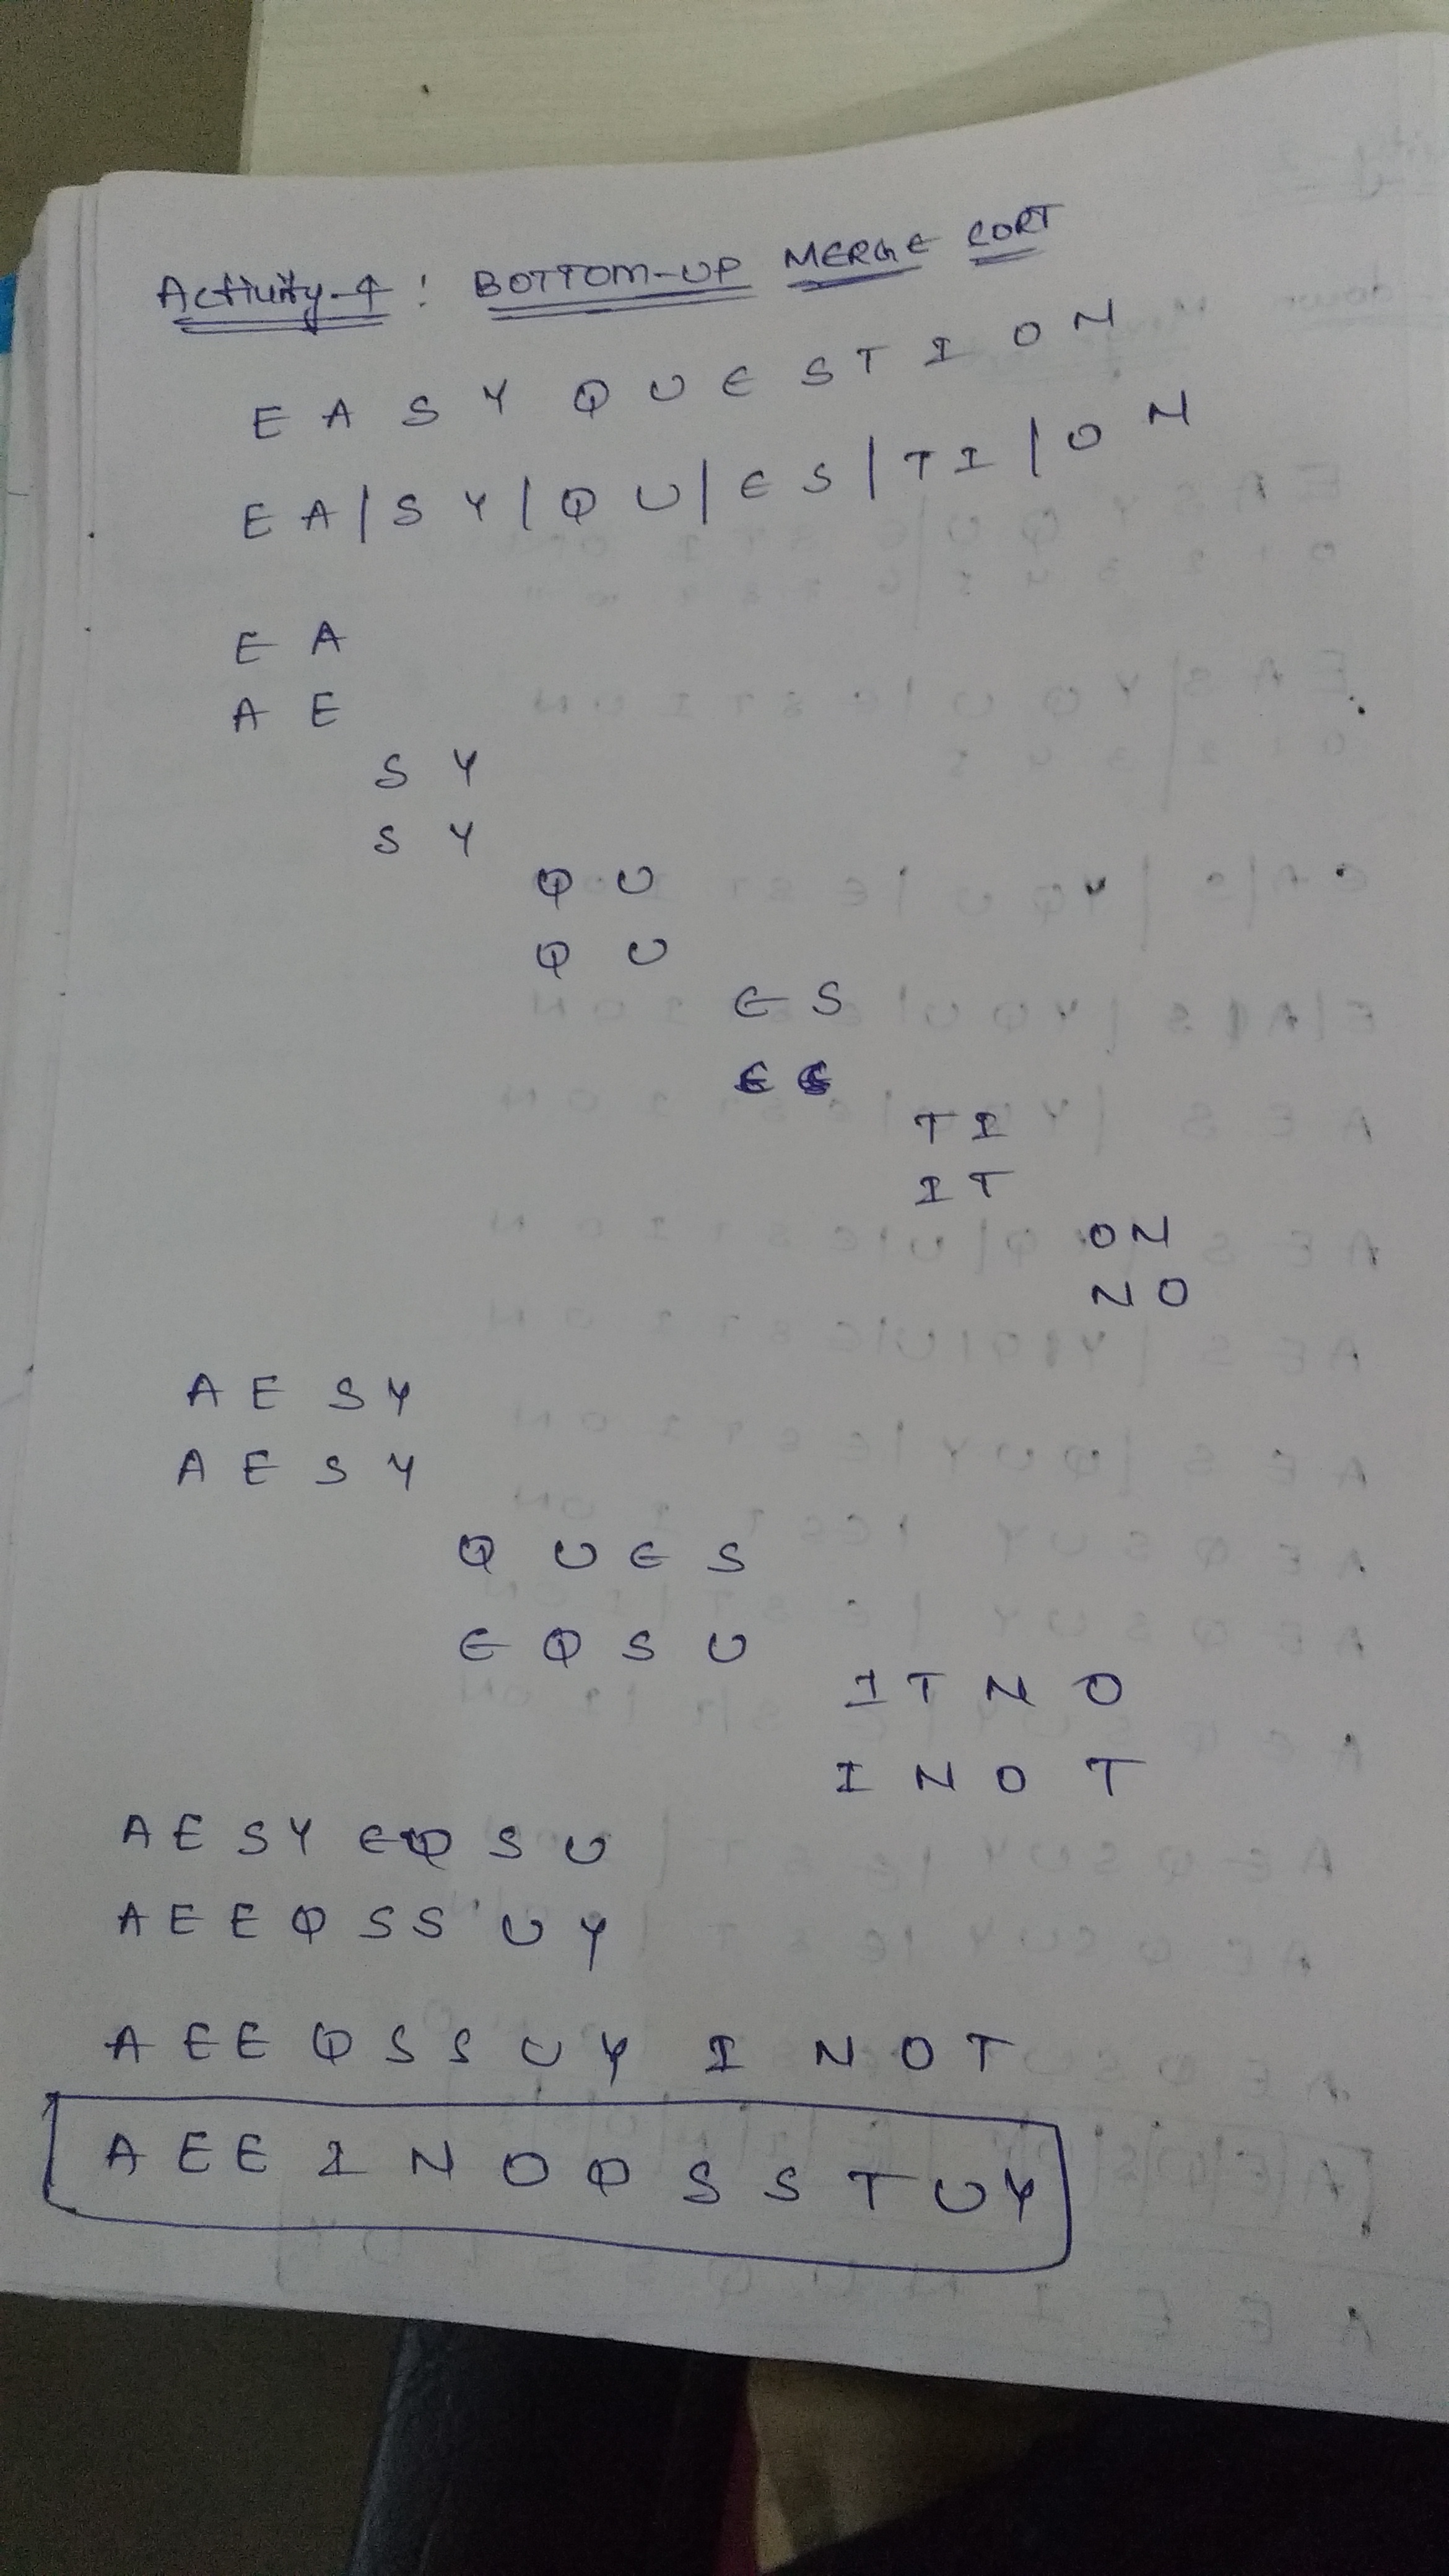 Activity-4 : BOTTOM-UP MERGE SORT
E A S Y Q U E S T I O N
E A | S Y | Q U | E S | T I | O N
E A
A E
S Y
S Y
Q U
Q U
E S
E S
T I
I T
O N
N O
A E S Y
A E S Y
Q U E S
E Q S U
I T N O
I N O T
A E S Y E Q S U
A E E Q S S U Y
A E E Q S S U Y I N O T
A E E I N O Q S S T U Y